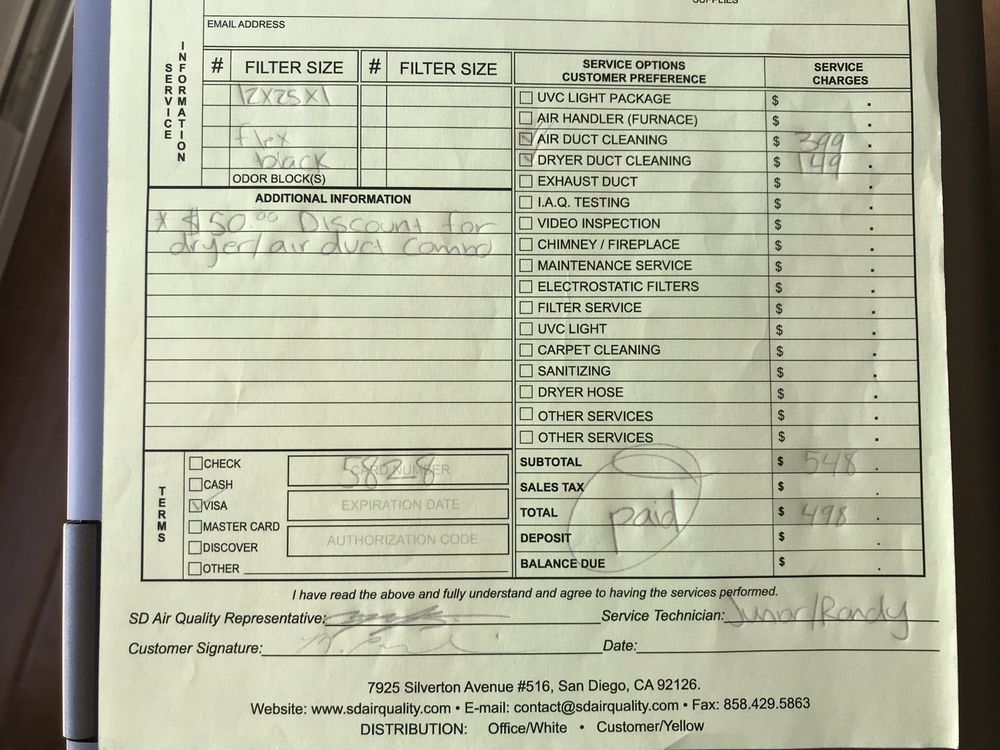 SUPPLIES
EMAIL ADDRESS
SERVICE INFORMATION
# FILTER SIZE # FILTER SIZE
12x25x1
flex
black
ODOR BLOCK(S)
ADDITIONAL INFORMATION
* $50.00 Discount for
dryer/air duct combo
SERVICE OPTIONS
CUSTOMER PREFERENCE
SERVICE
CHARGES
UVC LIGHT PACKAGE $ .
AIR HANDLER (FURNACE) $ .
AIR DUCT CLEANING $ 399 .
DRYER DUCT CLEANING $ 149 .
EXHAUST DUCT $ .
I.A.Q. TESTING $ .
VIDEO INSPECTION $ .
CHIMNEY / FIREPLACE $ .
MAINTENANCE SERVICE $ .
ELECTROSTATIC FILTERS $ .
FILTER SERVICE $ .
UVC LIGHT $ .
CARPET CLEANING $ .
SANITIZING $ .
DRYER HOSE $ .
OTHER SERVICES $ .
OTHER SERVICES $ .
SUBTOTAL $ 548 .
SALES TAX $ .
TOTAL $ 498 .
paid
DEPOSIT $ .
BALANCE DUE $ .
TERMS
CHECK
CASH
VISA
MASTER CARD
DISCOVER
OTHER
CARD NUMBER
5828
EXPIRATION DATE
AUTHORIZATION CODE
I have read the above and fully understand and agree to having the services performed.
SD Air Quality Representative: Service Technician: Junior/Randy
Customer Signature: Date:
7925 Silverton Avenue #516, San Diego, CA 92126.
Website: www.sdairquality.com • E-mail: contact@sdairquality.com • Fax: 858.429.5863
DISTRIBUTION: Office/White • Customer/Yellow